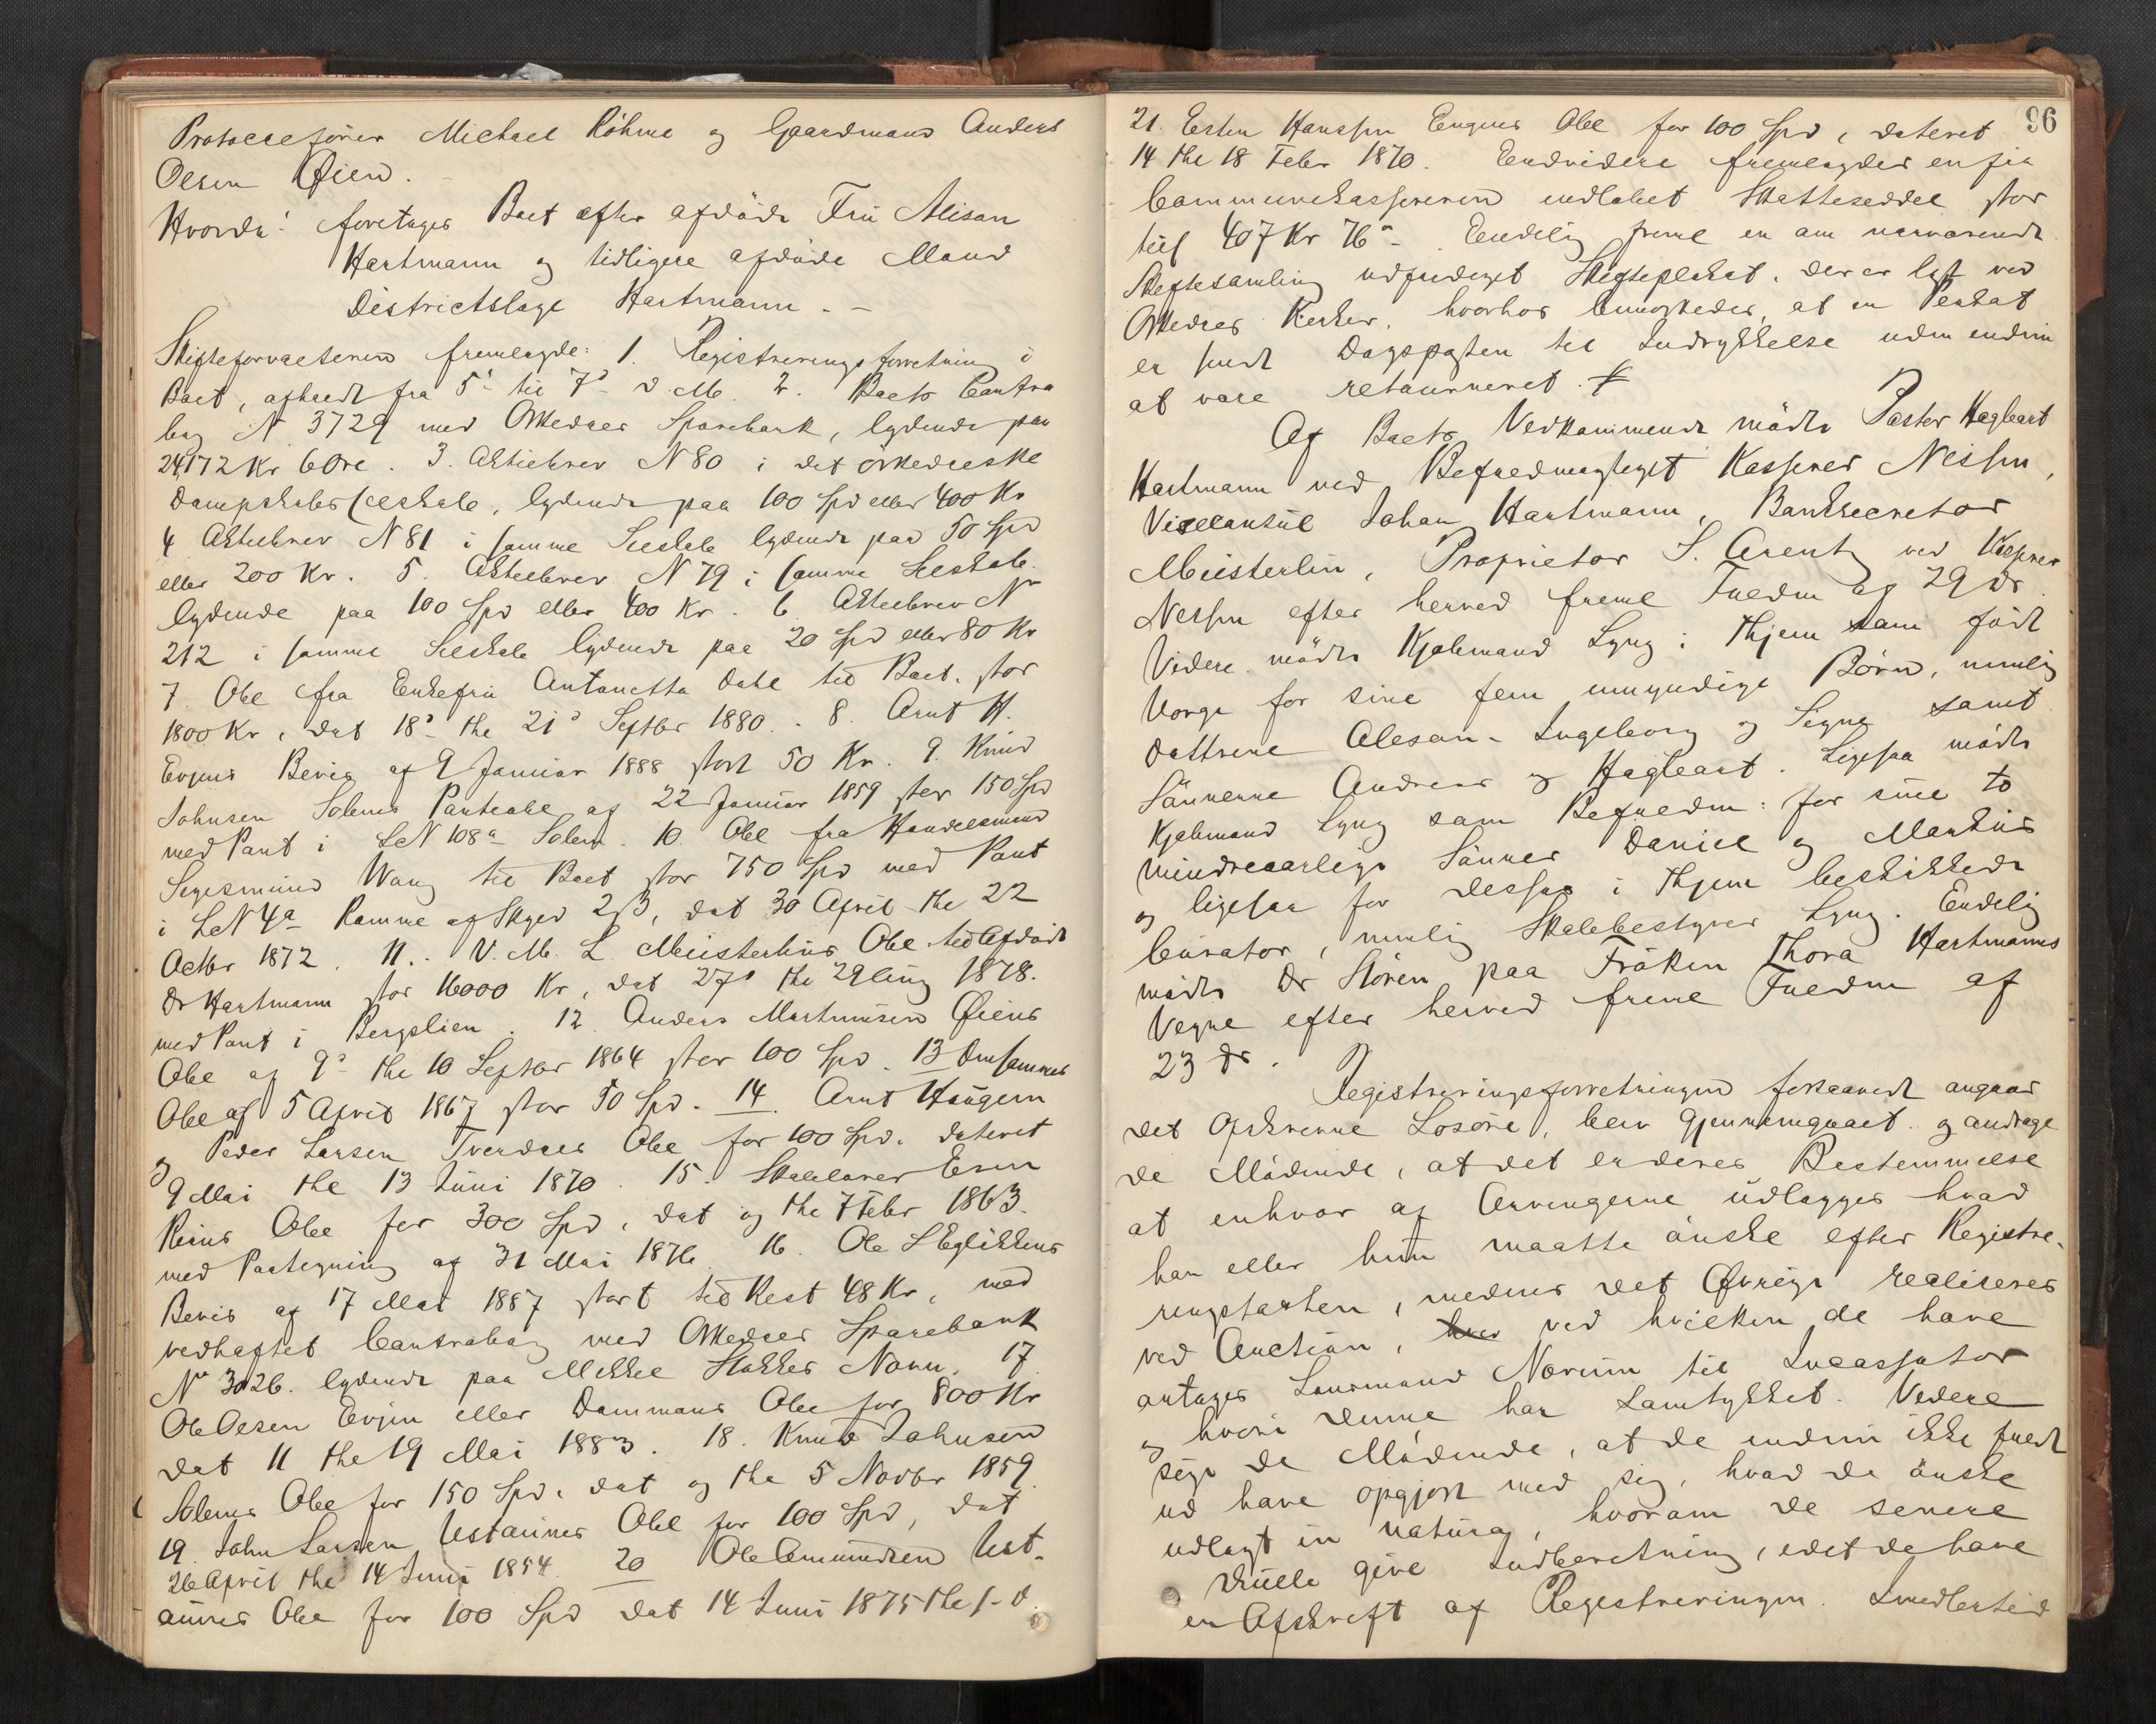 Protocolfører Michael Röhme og Gaardmand Anders
Olsen Øien.
Hvorda: foretages Boet efter afdøde Fru Alisan
Hartmann og tidligere afdøde Mand
Districtslæge Hartmann. -
Skifteforvalteren fremlagde: 1. Registreringsforretning i
Boet, afholdt fra 5te til 7de d. M. 2. Boets Contra
bog N 3729 med Orkedals Sparebank, lydende paa
24,172 Kr 6 Øre. 3. Aktiebrev N 80 i det orkedalske
Dampskibsselskab, lydende paa 100 Spd eller 400 Kr
4 Aktiebrev N 81 i samme Selskab lydende paa 50 Spd
eller 200 Kr. 5. Aktiebrev N 79 i samme Selskab
lydende paa 100 Spd eller 400 Kr. 6 Aktiebrev No
212 i samme Selskab lydende paa 20 Spd eller 80 Kr
7. Obl fra Enkefru Antonetta Dahl til Boet, stor
1800 Kr, dat 18de thl 21de Septbr 1880. 8. Arnt H.
Evjens Bevis af 9 Januar 1888 stort 50 Kr. 9. Knud
Johnsen Solems Panteobl af 22 Januar 1859 stor 150 Spd
med Pant i LN 108a Solem. 10. Obl fra Handelsmand
Sigismund Wang til Boet stor 750 Spd med Pant
i LN 4a Komme af Skyld 2 β, dat 30 April thl 22
Octbr 1872. 11. V. M. L. Meisterlins Obl til Afdøde
Dr Hartmann stor 16000 Kr, dat 27de thl 29 Aug 1878.
med Pant i Bergslien. 12. Anders Martinusen Øiens
Obl af 9de thl 10 Septbr 1864 stor 100 Spd. 13 Dens sammes
Obl af 5 April 1867 stor 50 Spd. 14. Arnt Haugen
og Peder Larsen Tverdals Obl for 100 Spd. dateret
9 Mai thl 13 Juni 1870. 15. Skolelærer Esen
Reins Obl for 300 Spd, dat og thl 7 Febr 1863.
med Paategning af 31 Mai 1876. 16. Ole L Eglikkens
Bevis af 17 Mai 1887 stort til Rest 48 Kr, med
vedhæftet Contrabog med Orkedals Sparebank
No 3026. lydende paa Mikkel Stokkes Navn. 17
Ole Olsen Evjen eller Dammans Obl for 800 Kr
dat 11 thl 19 Mai 1883. 18. Knud Johnsen
Solems Obl for 150 Spd. dat og thl 5 Novbr 1859
19. John Larsen Ustaunes Obl for 100 Spd, dat
26 April thl 14 Juni 1854. 20 Ole Amundsen Ust-
aunes Obl for 100 Spd dat 14 Juni 1875 thl s. D.
96
21. Esten Hanssen Eugens Obl for 100 Spd, dateret
14 thl 18 Febr 1870. Endvidere fremlagdes en fra
Communekassereren indløbet Skatteseddel stor
tils 407 Kr 76 ø. Endelig freml en om nærværende
Skiftesamling udfærdiget Skifteplakat, der er læst ved
Orkedals Kirker, hvorhos bemærkedes, at en Plakat
er sendt Dagsposten til Indrykkelse uden endnu
at være retourneret.
Af Boets Vedkommende mødte Pastor Hagbart
Hartmann ved Befuldmægtiget Kasserer Nissen,
Viceconsul Johan Hartmann, Banksecretær
Meisterlin, Proprietær S. Arentz ved Kasserer
Nissen efter herved freml Fuldm af 29 ds.
Videre mødte Kjøbmand Lyng i Thjem som født
Værge for sine fem umyndige Børn, nemlig
Døttrene Alesan- Ingeborg og Signe samt
Sønnerne Andreas og Hagbart. Ligesaa mødte
Kjøbmand Lyng som Befuldm: for sine to
mindreaarige Sønner Daniel og Markus
og ligesaa for disses i Thjem beskikkede
Curator, nemlig Skolebestyrer Lyng. Endelig
mødte Dr Støren paa Frøken Thora Hartmanns
Vegne efter herved freml Fuldm af
23 ds.
Registreringsforretningen forsaavidt angaar
det opskrevne Løsøre, blev gjennemgaaet. og androge
de Mødende, at det er deres Bestemmelse
at enhver af Arvingerne udlægges hvad
han eller hun maatte ønske efter Registre-
ringstaxten, medens det Øvrige realiseres
ved Auction, ved hvilken de have
antaget Lensmand Norum til Incassator
og hvori denne har Samtykket. Videre
sige de Mødende, at de endnu ikke fuldt
ud have opgjort med sig, hvad de ønske
udlagt in natura, hvorom de senere
skulle give Indberetning, idet de have
en Afskrift af Registreringen. Imidlertid